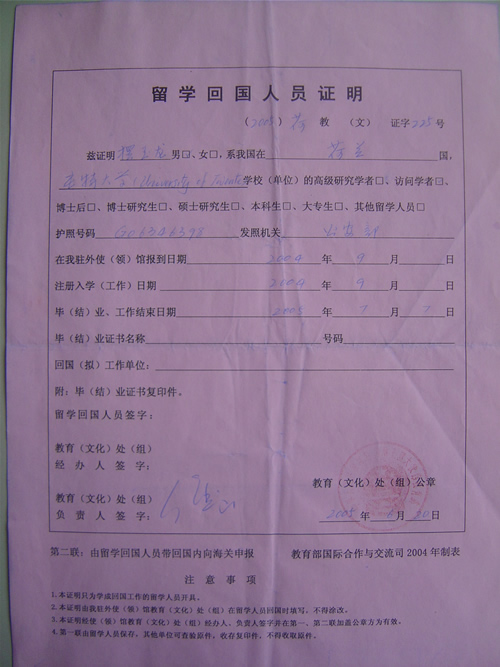 留学回国人员证明
(2005) 芬 教 (文) 证字 225 号
兹证明 男☑、女□,系我国在 芬兰 国,
University of 学校(单位)的高级研究学者□、访问学者☑、
博士后□、博士研究生□、硕士研究生□、本科生□、大专生□、其他留学人员□
护照号码 发照机关 公安部
在我驻外使(领)馆报到日期 2004 年 9 月 日
注册入学(工作)日期 2004 年 9 月 日
毕(结)业、工作结束日期 2005 年 7 月 7 日
毕(结)业证书名称 号码
回国(拟)工作单位:
附:毕(结)业证书复印件。
留学回国人员签字:
教育(文化)处(组)
经办人签字:
教育(文化)处(组)
负责人签字:
教育(文化)处(组)公章
2005 年 6 月 20 日
第二联:由留学回国人员带回国内向海关申报 教育部国际合作与交流司 2004 年制表
注意事项
1.本证明只为学成回国工作的留学人员开具。
2.本证明由我驻外使(领)馆教育(文化)处(组)在留学人员回国时填写,不得涂改。
3.本证明经使(领)馆教育(文化)处(组)经办人、负责人签字并在第一、第二联加盖公章方为有效。
4.第一联由留学人员保存,其他单位可查验原件,收存复印件,不得收取原件。